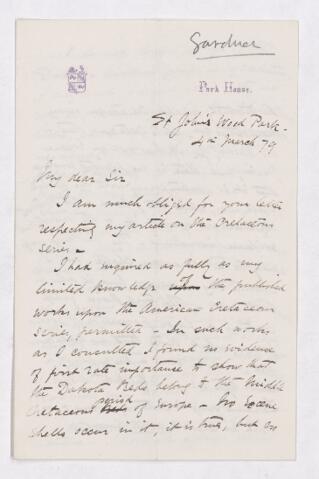 Gardner
Park House.
St John's Wood Park -
4th March 79
My dear Sir
I am much obliged for your letter
respecting my article on the Cretaceous
series -
I had inquired as fully as my
limited knowledge of the published
works upon the American Cretaceous
series, permitted - In such works
as I consulted I found no evidence
of first rate importance to show that
the Dakota beds belong to the Middle
Cretaceous period of Europe - No Eocene
shells occur in it, it is true, but no